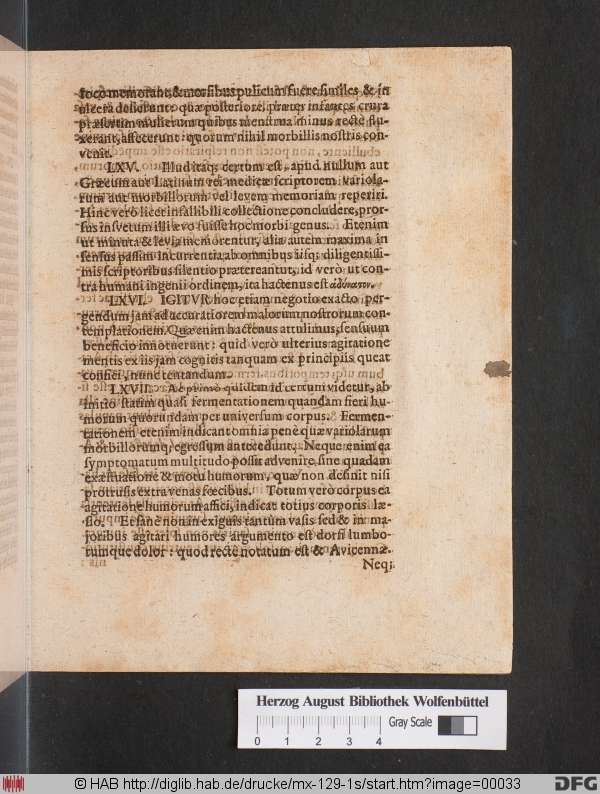 loco memorant, & morsibus pulicum fuere similes & in
ulcera desierunt: quæ posteriore, præter infantes crura
præsertim mulierum quibus menstrua minus recte flu-
xerant, affecerunt: quorum nihil morbillis nostris con-
venit.
LXV. Illud itaq; certum est, apud nullum aut
Græcum aut Latinum rei medicæ scriptorem variola-
rum aut morbillorum vel levem memoriam reperiri.
Hinc verò licet infallibili collectione concludere, pror-
sus insvetum illi ævo fuisse hoc morbi genus. Etenim
ut minuta & levia memorentur, alia autem maxima in
sensus passim incurrentia ab omnibus iisq; diligentissi-
mis scriptoribus silentio prætereantur, id verò ut con-
tra humani ingenii ordinem, ita hactenus est ἀδύνατον.
LXVI. IGITVR hoc etiam negotio exacto per-
gendum jam ad accuratiorem malorum nostrorum con-
templationem. Quæ enim hactenus attulimus, sensuum
beneficio innotuerunt: quid verò ulterius agitatione
mentis ex iis jam cognitis tanquam ex principiis queat
confici, nunc tentandum.
LXVII. Ac primò quidem id certum videtur, ab
initio statim quasi fermentationem quandam fieri hu-
morum quorundam per universum corpus. Fermen-
tationem etenim indicant omnia penè quæ variolarum
morbillorumq; egressum antecedunt. Neque enim ea
symptomatum multitudo possit advenire, sine quadam
exæstuatione & motu humorum, quæ non desinit nisi
protrusis extra venas fœcibus. Totum verò corpus ea
agitatione humorum affici, indicat totius corporis læ-
sio. Et sane non in exiguis tantum vasis sed & in ma-
joribus agitari humores argumento est dorsi lumbo-
rumque dolor: quod rectè notatum est & Avicennæ.
Neq;
Herzog August Bibliothek Wolfenbüttel
Gray Scale
0 1 2 3 4
© HAB http://diglib.hab.de/drucke/mx-129-1s/start.htm?image=00033
DFG